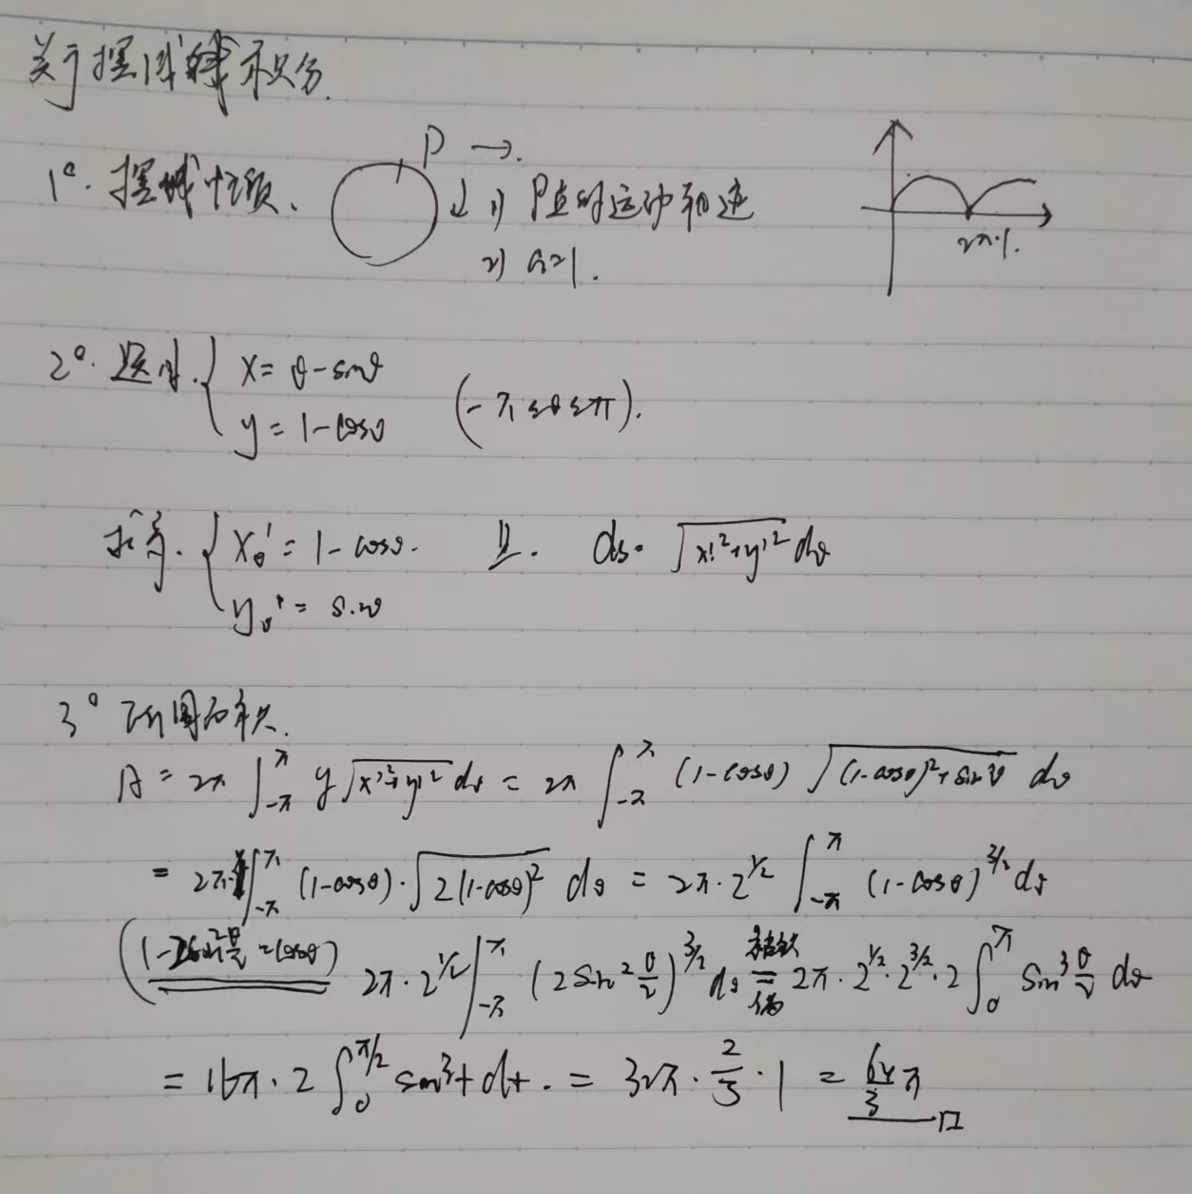 关于摆线积分.
1°. 摆线性质、 P →. ↓ 1) P点的运动轨迹
2) a=1. 2π·1.
2°. 题目. { x = θ-sinθ
y = 1-cosθ (-π≤θ≤π).
求导. { xθ' = 1-cosθ. 且. ds= √(x'²+y'²) dθ
yθ' = sinθ
3° 所围面积.
A = 2π ∫_{-π}^{π} y √(x'²+y'²) dθ = 2π ∫_{-π}^{π} (1-cosθ) √((1-cosθ)²+sin²θ) dθ
= 2π·∫_{-π}^{π} (1-cosθ)·√(2(1-cosθ)²) dθ = 2π·2^{1/2} ∫_{-π}^{π} (1-cosθ)^{3/2} dθ
(1-2sin²θ/2 = cosθ) 2π·2^{1/2} ∫_{-π}^{π} (2sin²θ/2)^{3/2} dθ = 2π·2^{1/2}·2^{3/2}·2 ∫_0^{π} sin³θ/2 dθ
= 16π·2 ∫_0^{π/2} sin³t dt. = 32π·2/3·1 = 64/3 π